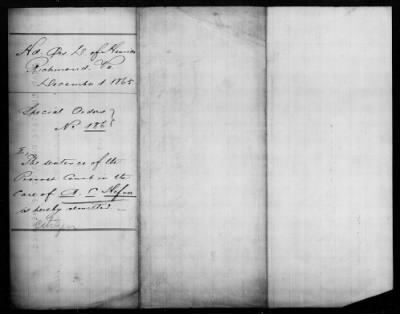 Hd Qrs D. of Henrico
Richmond, Va
December 1 1865
Special Orders
No 186
I, The sentence of the
Provost Court in the
case of
is hereby remitted
Citizen